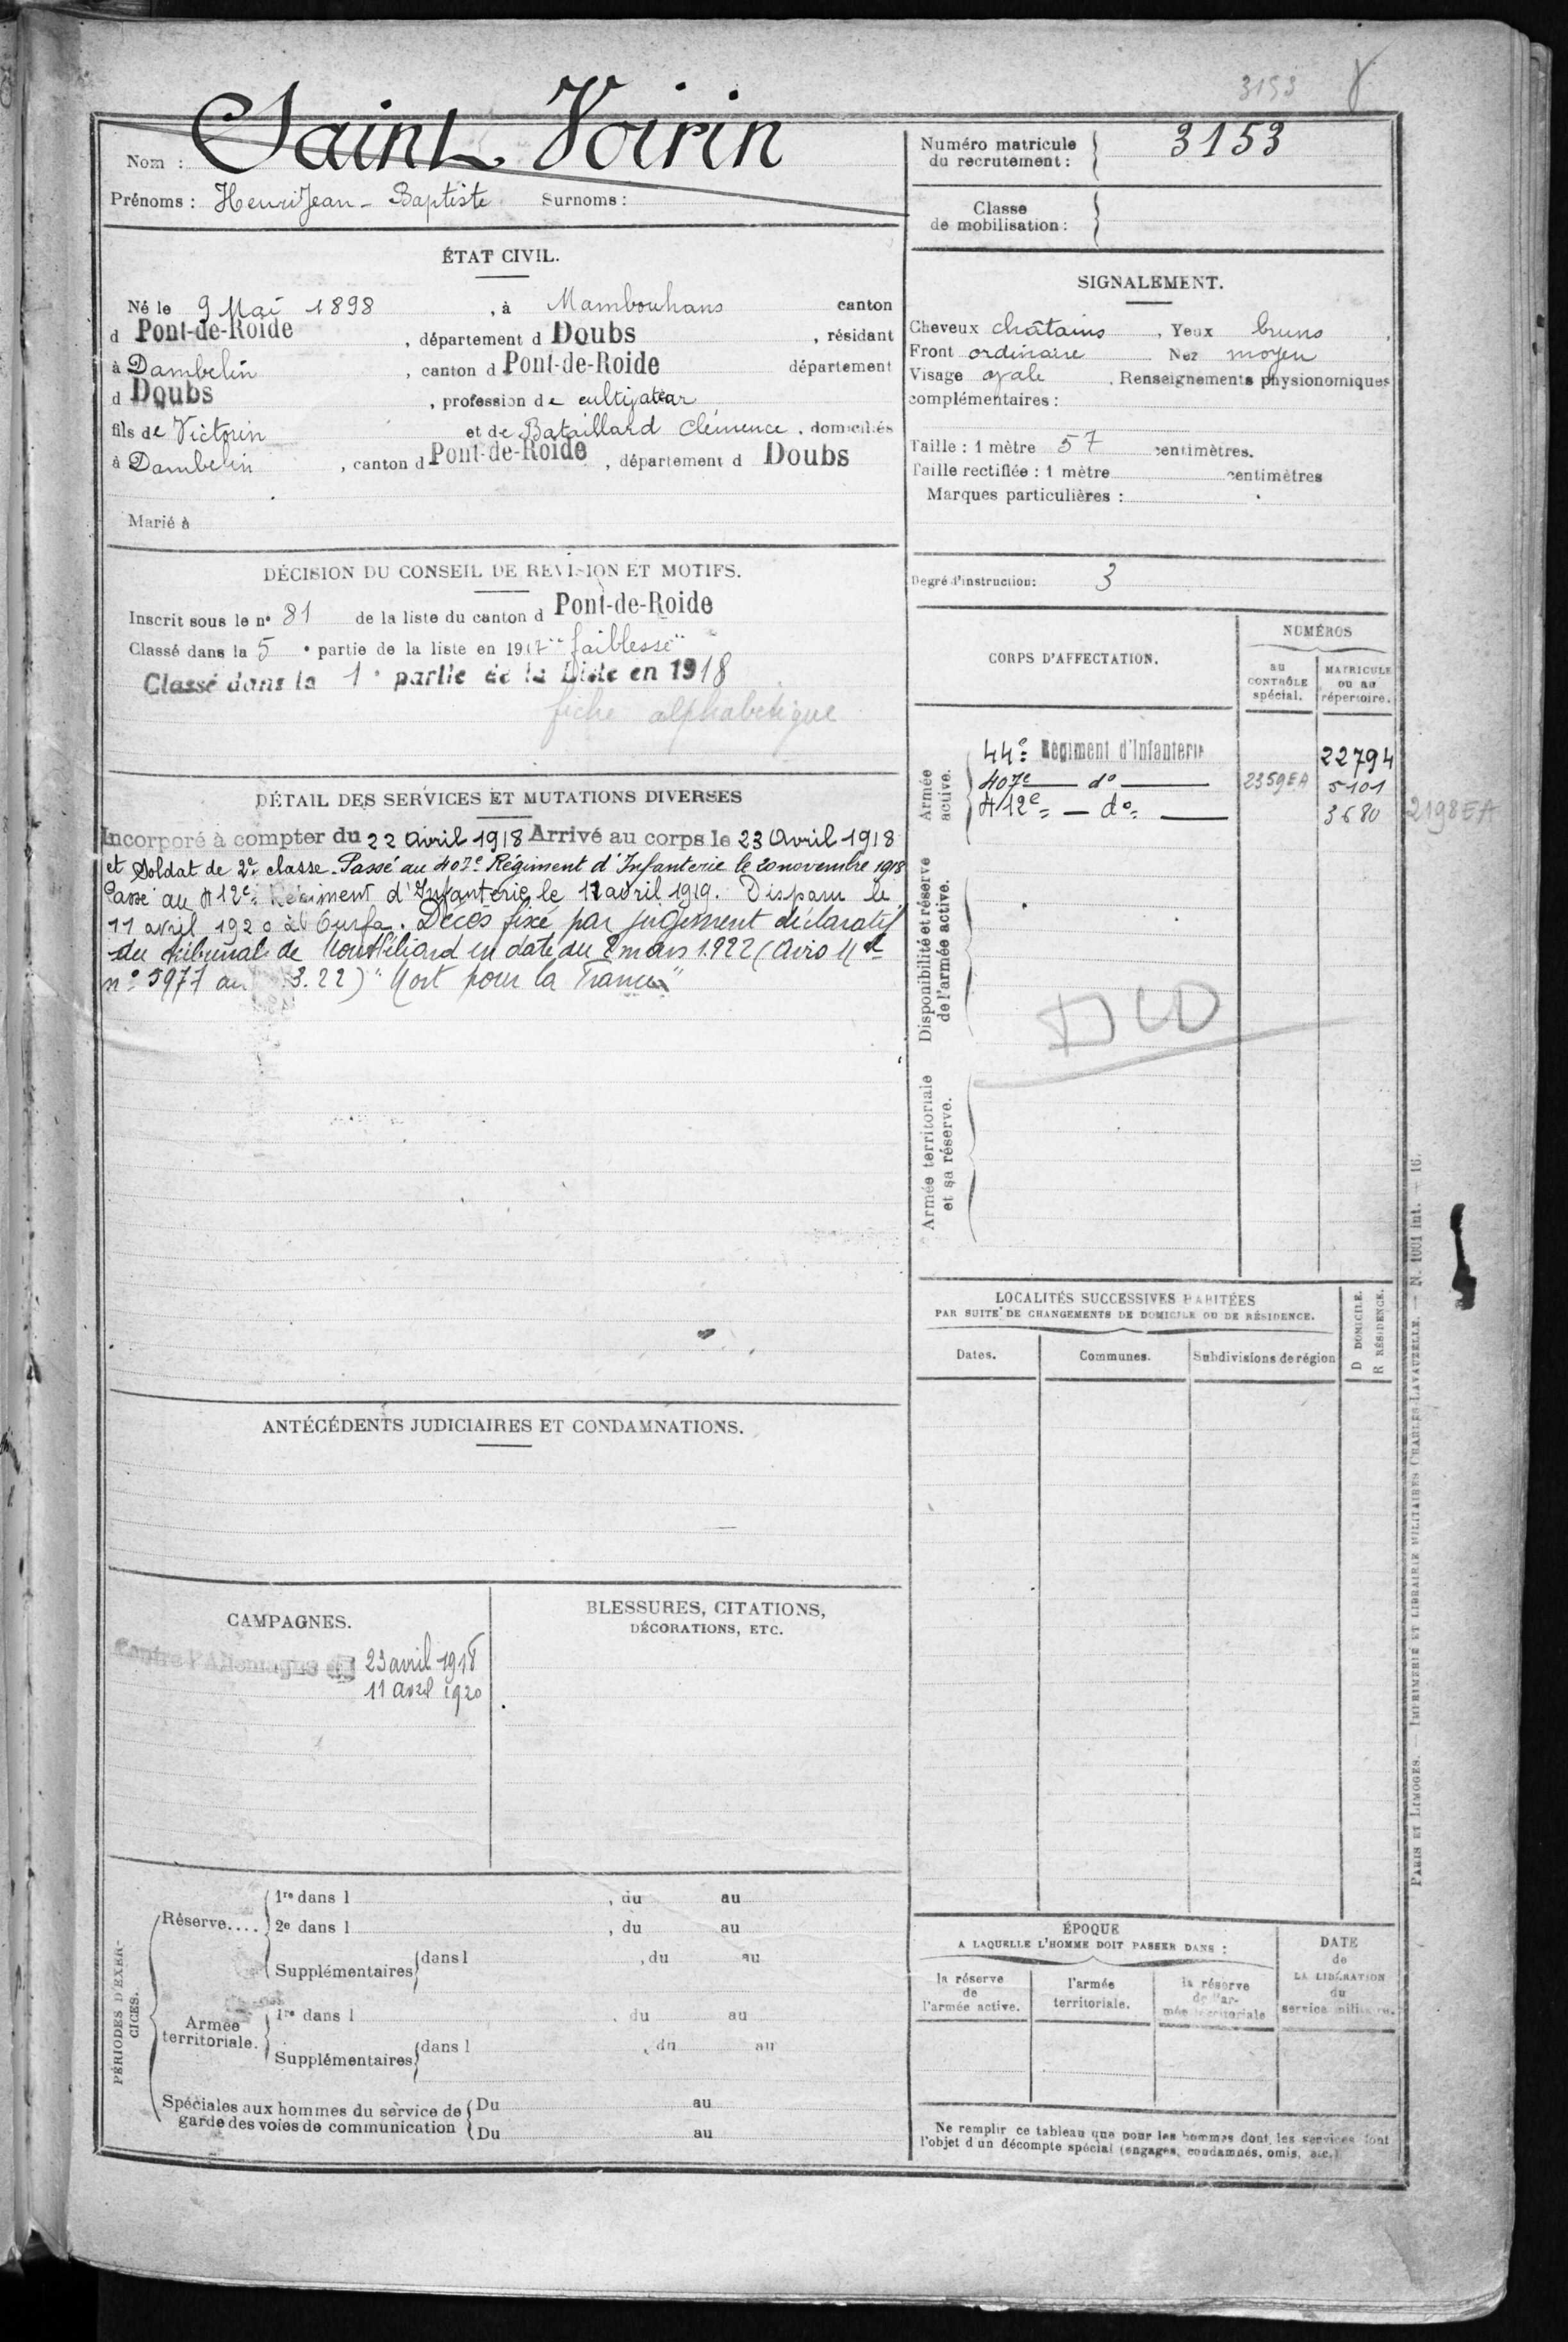 3153
Nom : Saint Voirin
Prénoms : Henri Jean-Baptiste Surnoms :
ÉTAT CIVIL.
Né le 9 Mai 1898, à Mambouhans canton
d Pont-de-Roide, département d Doubs, résidant
à Dambelin, canton d Pont-de-Roide département
d Doubs, profession de cultivateur
fils de Victorin et de Bataillard Clémence, domiciliés
à Dambelin, canton d Pont-de-Roide, département d Doubs
Marié à
DÉCISION DU CONSEIL DE REVISION ET MOTIFS.
Inscrit sous le n° 81 de la liste du canton d Pont-de-Roide
Classé dans la 5e partie de la liste en 1917 "faiblesse"
Classé dans la 1e partie de la Liste en 1918
fiche alphabétique
DÉTAIL DES SERVICES ET MUTATIONS DIVERSES
Incorporé à compter du 22 avril 1918 Arrivé au corps le 23 Avril 1918
et Soldat de 2e classe. Passé au 407e Régiment d'Infanterie le 20 novembre 1918
Passé au 412e Régiment d'Infanterie, le 11 avril 1919. Disparu le
11 avril 1920 à Ourfa. Décès fixé par jugement déclaratif
du tribunal de Montbéliard en date du 2 mars 1922 (Avis Mel
n° 5977 du 3.22) "Mort pour la France"
ANTÉCÉDENTS JUDICIAIRES ET CONDAMNATIONS.
CAMPAGNES.
Contre l'Allemagne du 23 avril 1918
11 avril 1920
BLESSURES, CITATIONS,
DÉCORATIONS, ETC.
PÉRIODES D'EXERCICES.
Réserve....
1re dans l , du au
2e dans l , du au
Supplémentaires dans l , du au
Armée territoriale.
1re dans l , du au
Supplémentaires dans l , du au
Spéciales aux hommes du service de Du au
garde des voies de communication Du au
Numéro matricule
du recrutement : 3153
Classe
de mobilisation :
SIGNALEMENT.
Cheveux châtains, Yeux bruns,
Front ordinaire Nez moyen
Visage ovale. Renseignements physionomiques
complémentaires :
Taille : 1 mètre 57 centimètres.
Taille rectifiée : 1 mètre centimètres
Marques particulières :
Degré d'instruction : 3
CORPS D'AFFECTATION.
NUMÉROS
au
CONTRÔLE
spécial.
MATRICULE
ou au
répertoire.
Armée
active.
44e Régiment d'Infanterie 22794
407e — do — 2359EA 5101
412e — do — 3680 2198EA
Disponibilité et réserve
de l'armée active.
DCD
Armée territoriale
et sa réserve.
LOCALITÉS SUCCESSIVES HABITÉES
PAR SUITE DE CHANGEMENTS DE DOMICILE OU DE RÉSIDENCE.
Dates.
Communes.
Subdivisions de région
D DOMICILE.
R RÉSIDENCE.
ÉPOQUE
A LAQUELLE L'HOMME DOIT PASSER DANS :
la réserve
de
l'armée active.
l'armée
territoriale.
la réserve
de l'ar-
mée territoriale
DATE
de
LA LIBÉRATION
du
service militaire.
Ne remplir ce tableau que pour les hommes dont les services font
l'objet d'un décompte spécial (engagés, condamnés, omis, etc.)
PARIS ET LIMOGES. — IMPRIMERIE ET LIBRAIRIE MILITAIRES CHARLES-LAVAUZELLE. — N. 1001 Int. — 16.